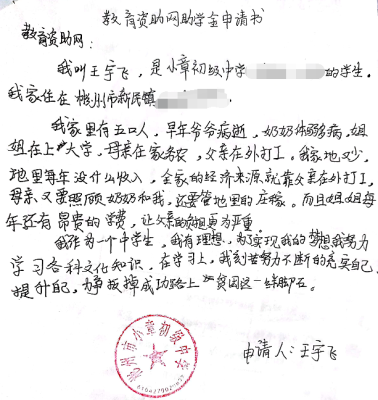 教育资助网助学金申请书
教育资助网：
我叫王宇飞，是小章初级中学 的学生。
我家住在 州市新民镇
我家里有五口人，早年爷爷病逝，奶奶体弱多病，姐
姐在上大学，母亲在家务农，父亲在外打工。我家地又少，
地里每年没什么收入，全家的经济来源就靠父亲在外打工，
母亲又要照顾奶奶和我，还要管地里的庄稼。而且姐姐每
年还有昂贵的学费，让父亲的负担更为严重。
我作为一个中学生，我有理想，为实现我的梦想我努力
学习各科文化知识，在学习上，我刻苦努力不断的充实自己，
提升自己，为争拔掉成功路上"贫困这一绊脚石。
州市小章初级中学
申请人：王宇飞